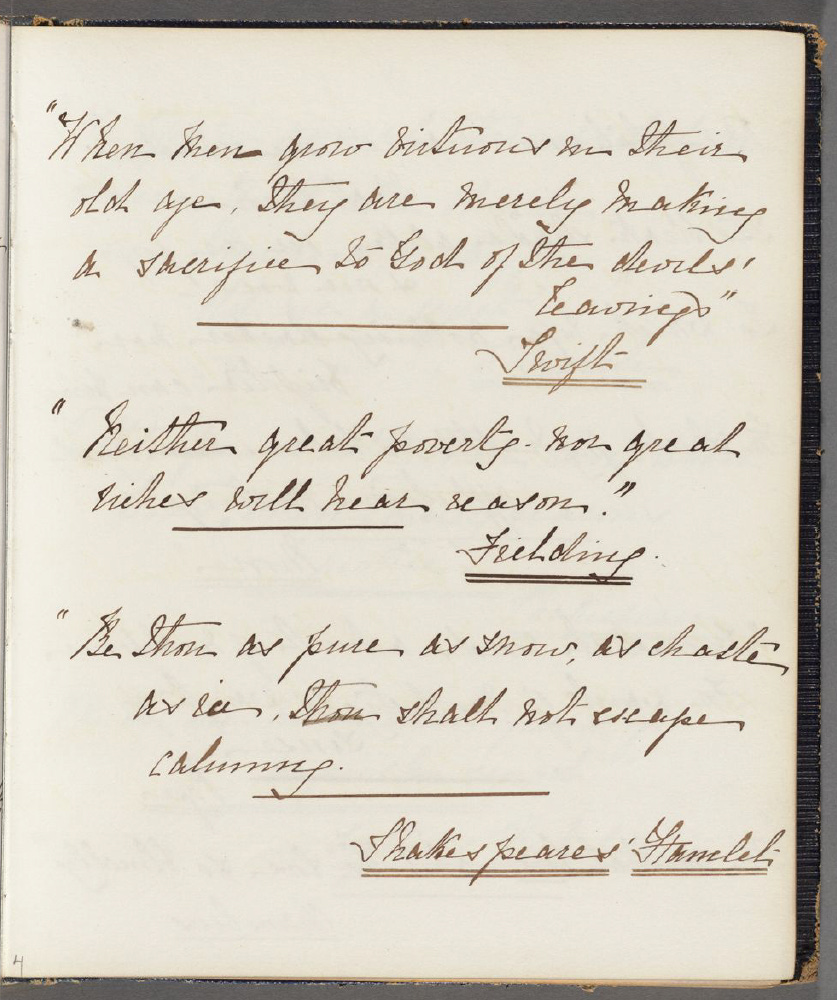 "When men grow virtuous in their
old age, they are merely making
a sacrifice to God of the devils'
leavings"
Swift
" Neither great poverty nor great
riches will hear reason."
Fielding.
" Be thou as pure as snow, as chaste
as ice, thou shalt not escape
calumny.
Shakespeares' Hamlet
4